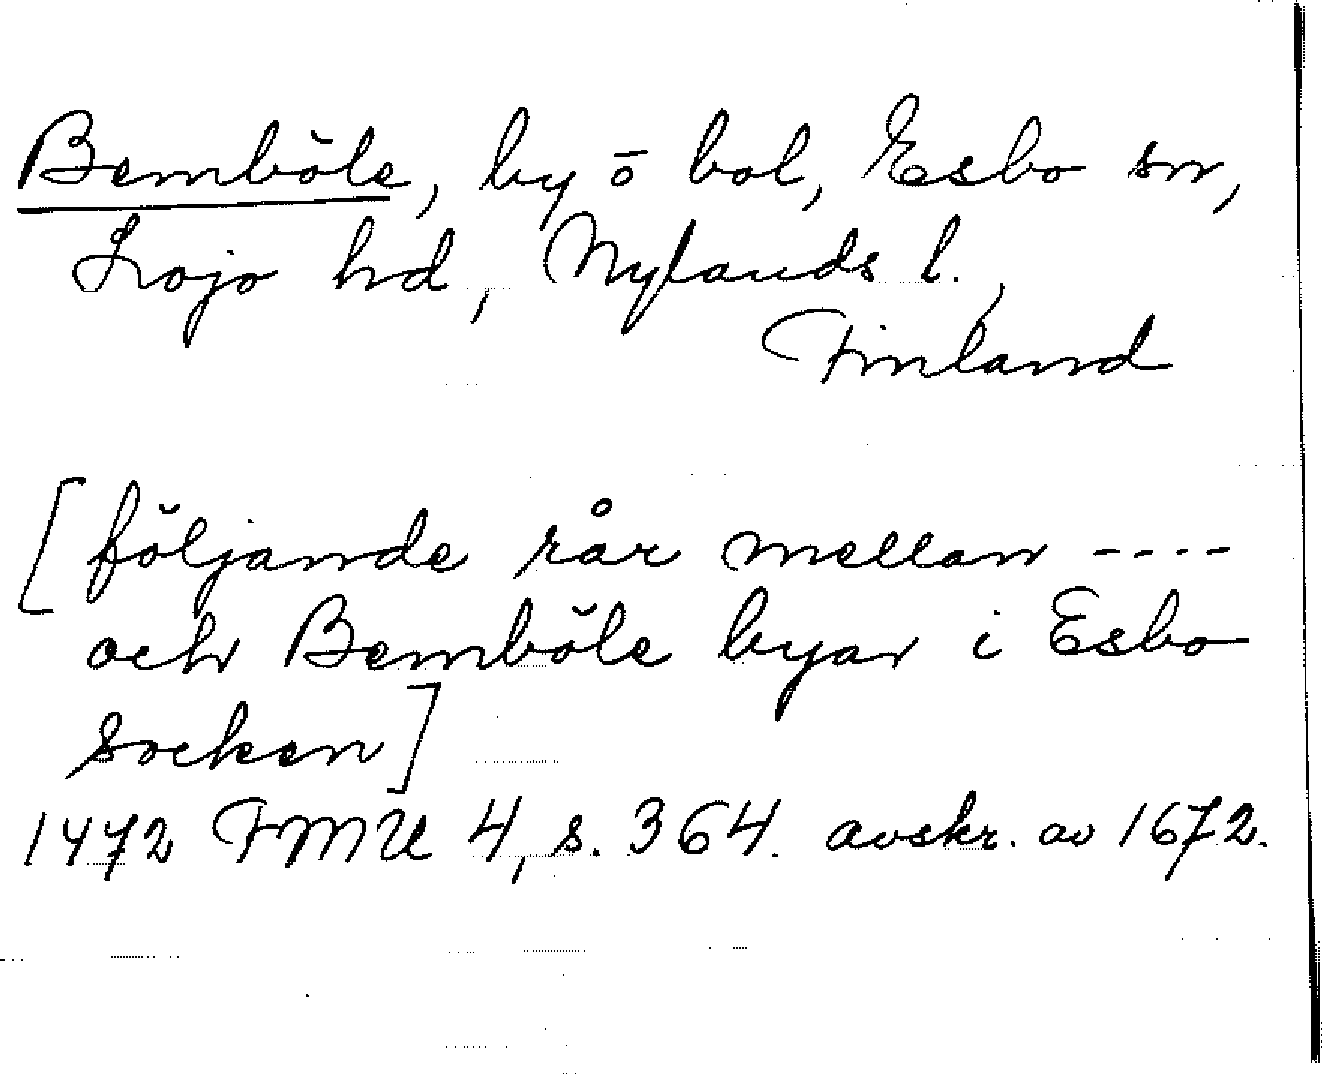 Bemböle, by ō bol, Esbo sn,
Lojo hd, Nylands l.,
Finland
[följande rår mellan ----
och Bemböle byar i Esbo
socken]
1472 FMU 4, s. 364. avskr. av 1672.